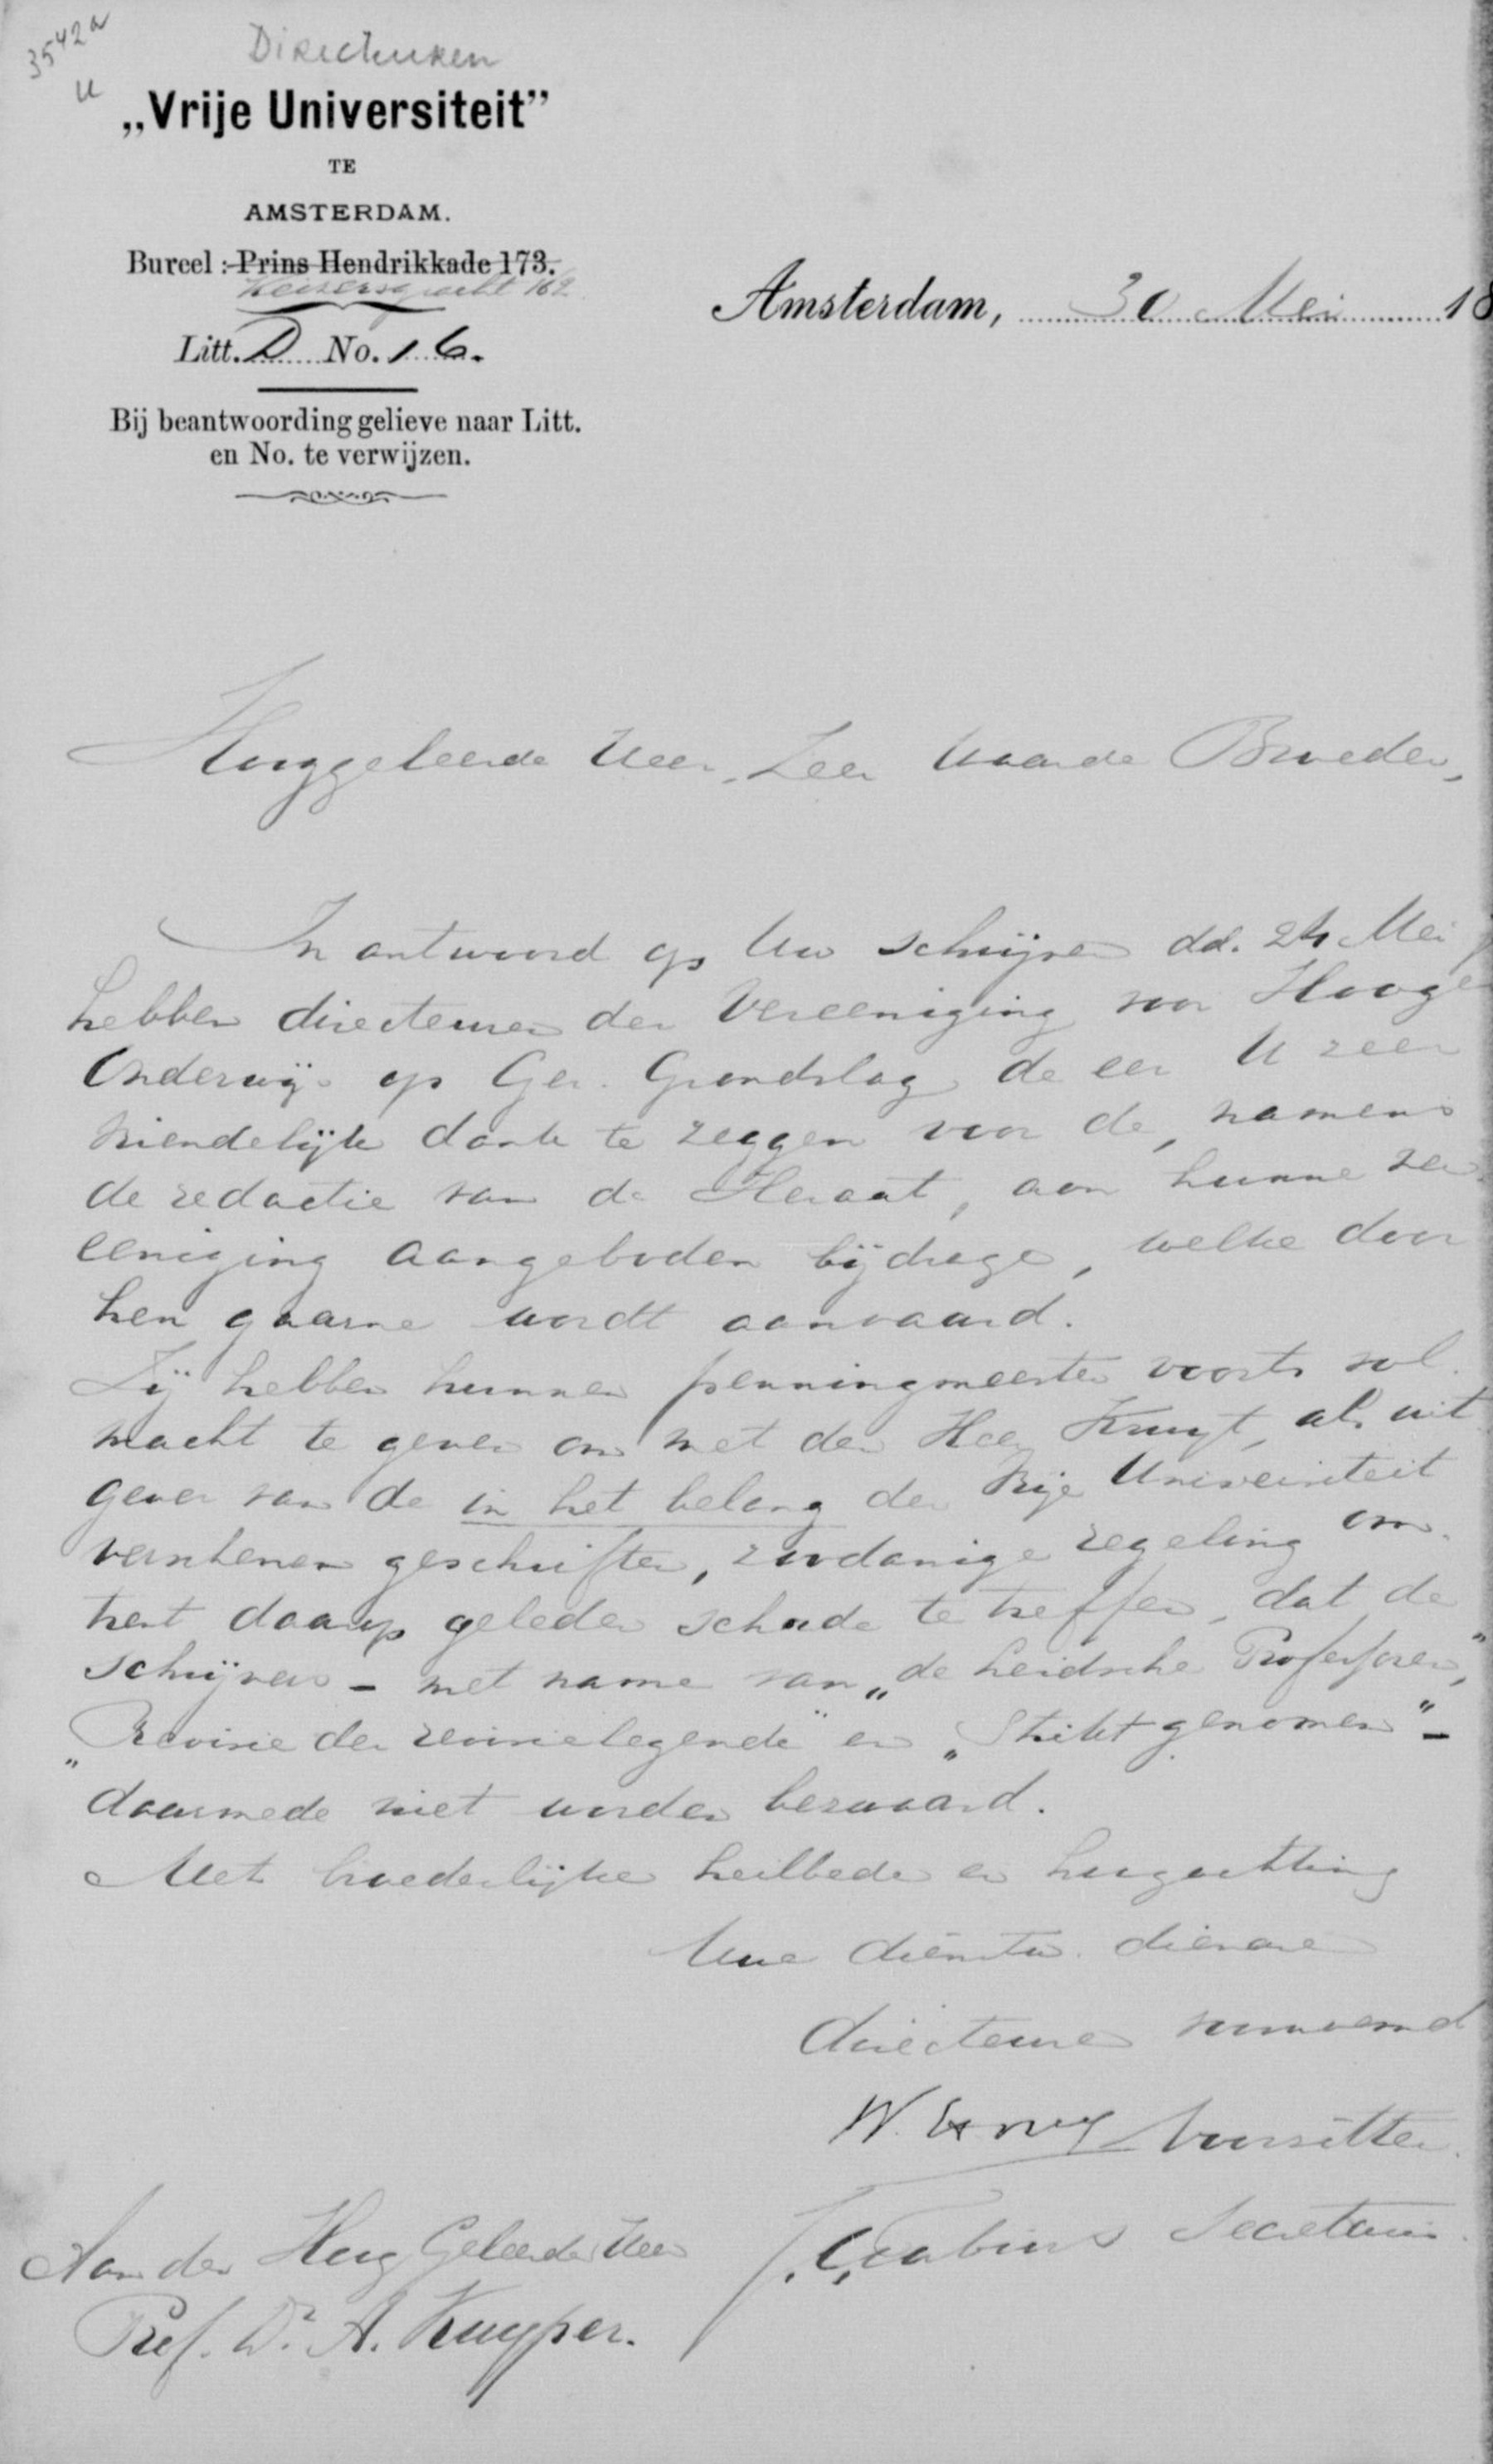 3542a
u
Directeuren
„Vrije Universiteit”
TE
AMSTERDAM.
Bureel: Prins Hendrikkade 173.
Keizersgracht 162
Litt. D No. 16.
Bij beantwoording gelieve naar Litt.
en No. te verwijzen.
Amsterdam, 30 Mei 18
Hooggeleerde Heer, Zeer Waarde Broeder,
In antwoord op Uw schrijven dd. 24 Mei
hebben directeuren der Vereeniging voor Hooger
Onderwijs op Ger. Grondslag de eer U zeer
vriendelijk dank te zeggen voor de, namens
de redactie van de Heraut, aan hunne ver
eeniging aangeboden bijdrage, welke door
hen gaarne wordt aanvaard.
Zij hebben hunnen penningmeester voorts vol
macht te geven om met den Heer Kruyt, als uit
gever van de in het belang der Vrije Universiteit
verschenen geschriften, zoodanige regeling om
trent daarop geleden schade te treffen, dat de
schrijvers - met name van „de Leidsche Professoren”,
„Revisie der revisielegende” en „Strikt genomen” -
daarmede niet worden bezwaard.
Met broederlijke heilbede en hoogachting
Uwe dienstw. dienaren
directeuren voornoemd
W. Hovy Voorzitter.
J. C. Fabius Secretaris.
Aan den Hoog Geleerden Heer
Prof. Dr. A. Kuyper.